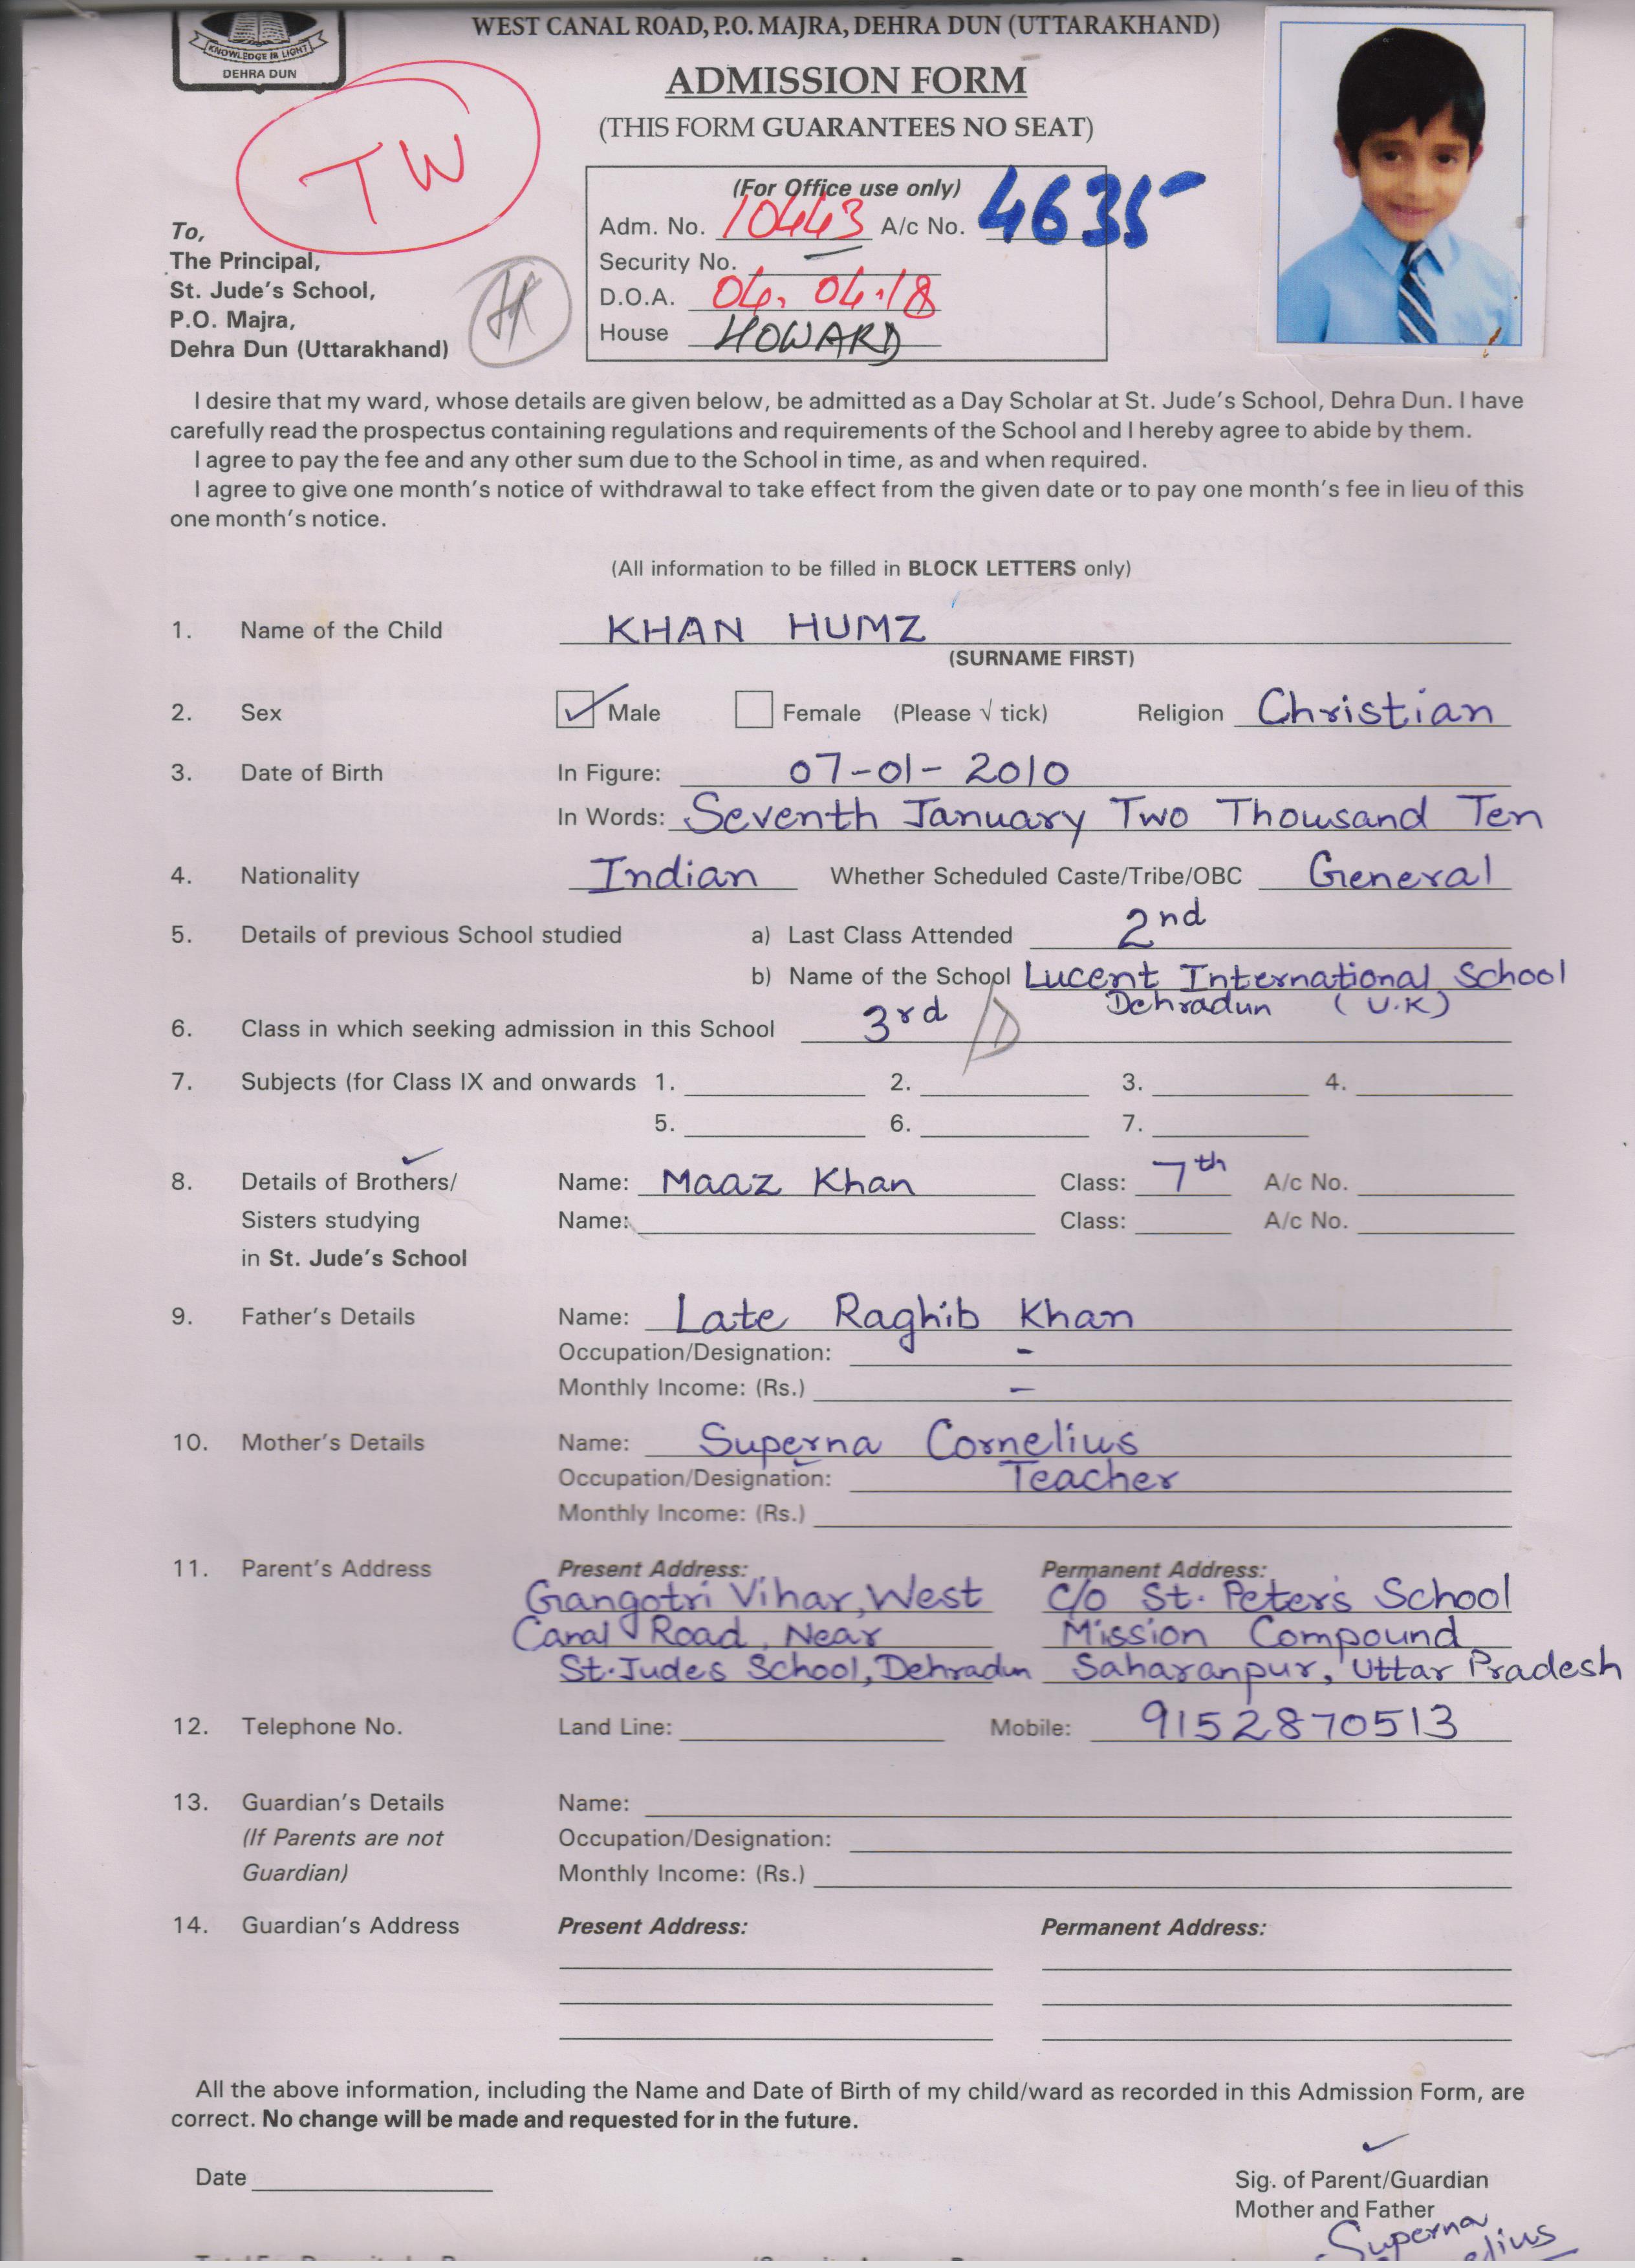 WEST CANAL ROAD, P.O. MAJRA, DEHRA DUN (UTTARAKHAND)
KNOWLEDGE IS LIGHT
DEHRA DUN
ADMISSION FORM
(THIS FORM GUARANTEES NO SEAT)
TW
(For Office use only)
Adm. No. 10443 A/c No. 4635
Security No.
D.O.A. 04.04.18
House HOWARD
To,
The Principal,
St. Jude's School,
P.O. Majra,
Dehra Dun (Uttarakhand)
I desire that my ward, whose details are given below, be admitted as a Day Scholar at St. Jude's School, Dehra Dun. I have
carefully read the prospectus containing regulations and requirements of the School and I hereby agree to abide by them.
I agree to pay the fee and any other sum due to the School in time, as and when required.
I agree to give one month's notice of withdrawal to take effect from the given date or to pay one month's fee in lieu of this
one month's notice.
(All information to be filled in BLOCK LETTERS only)
1. Name of the Child KHAN HUMZ
(SURNAME FIRST)
2. Sex ✓ Male Female (Please √ tick) Religion Christian
3. Date of Birth In Figure: 07-01-2010
In Words: Seventh January Two Thousand Ten
4. Nationality Indian Whether Scheduled Caste/Tribe/OBC General
5. Details of previous School studied a) Last Class Attended 2nd
b) Name of the School Lucent International School
Dehradun (U.K)
6. Class in which seeking admission in this School 3rd D
7. Subjects (for Class IX and onwards 1. 2. 3. 4.
5. 6. 7.
8. Details of Brothers/ Name: Maaz Khan Class: 7th A/c No.
Sisters studying Name: Class: A/c No.
in St. Jude's School
9. Father's Details Name: Late Raghib Khan
Occupation/Designation: -
Monthly Income: (Rs.) -
10. Mother's Details Name: Superna Cornelius
Occupation/Designation: Teacher
Monthly Income: (Rs.)
11. Parent's Address Present Address: Permanent Address:
Gangotri Vihar, West C/o St. Peter's School
Canal Road, Near Mission Compound
St. Judes School, Dehradun Saharanpur, Uttar Pradesh
12. Telephone No. Land Line: Mobile: 9152870513
13. Guardian's Details Name:
(If Parents are not Occupation/Designation:
Guardian) Monthly Income: (Rs.)
14. Guardian's Address Present Address: Permanent Address:
All the above information, including the Name and Date of Birth of my child/ward as recorded in this Admission Form, are
correct. No change will be made and requested for in the future.
Date
Sig. of Parent/Guardian
Mother and Father
Superna